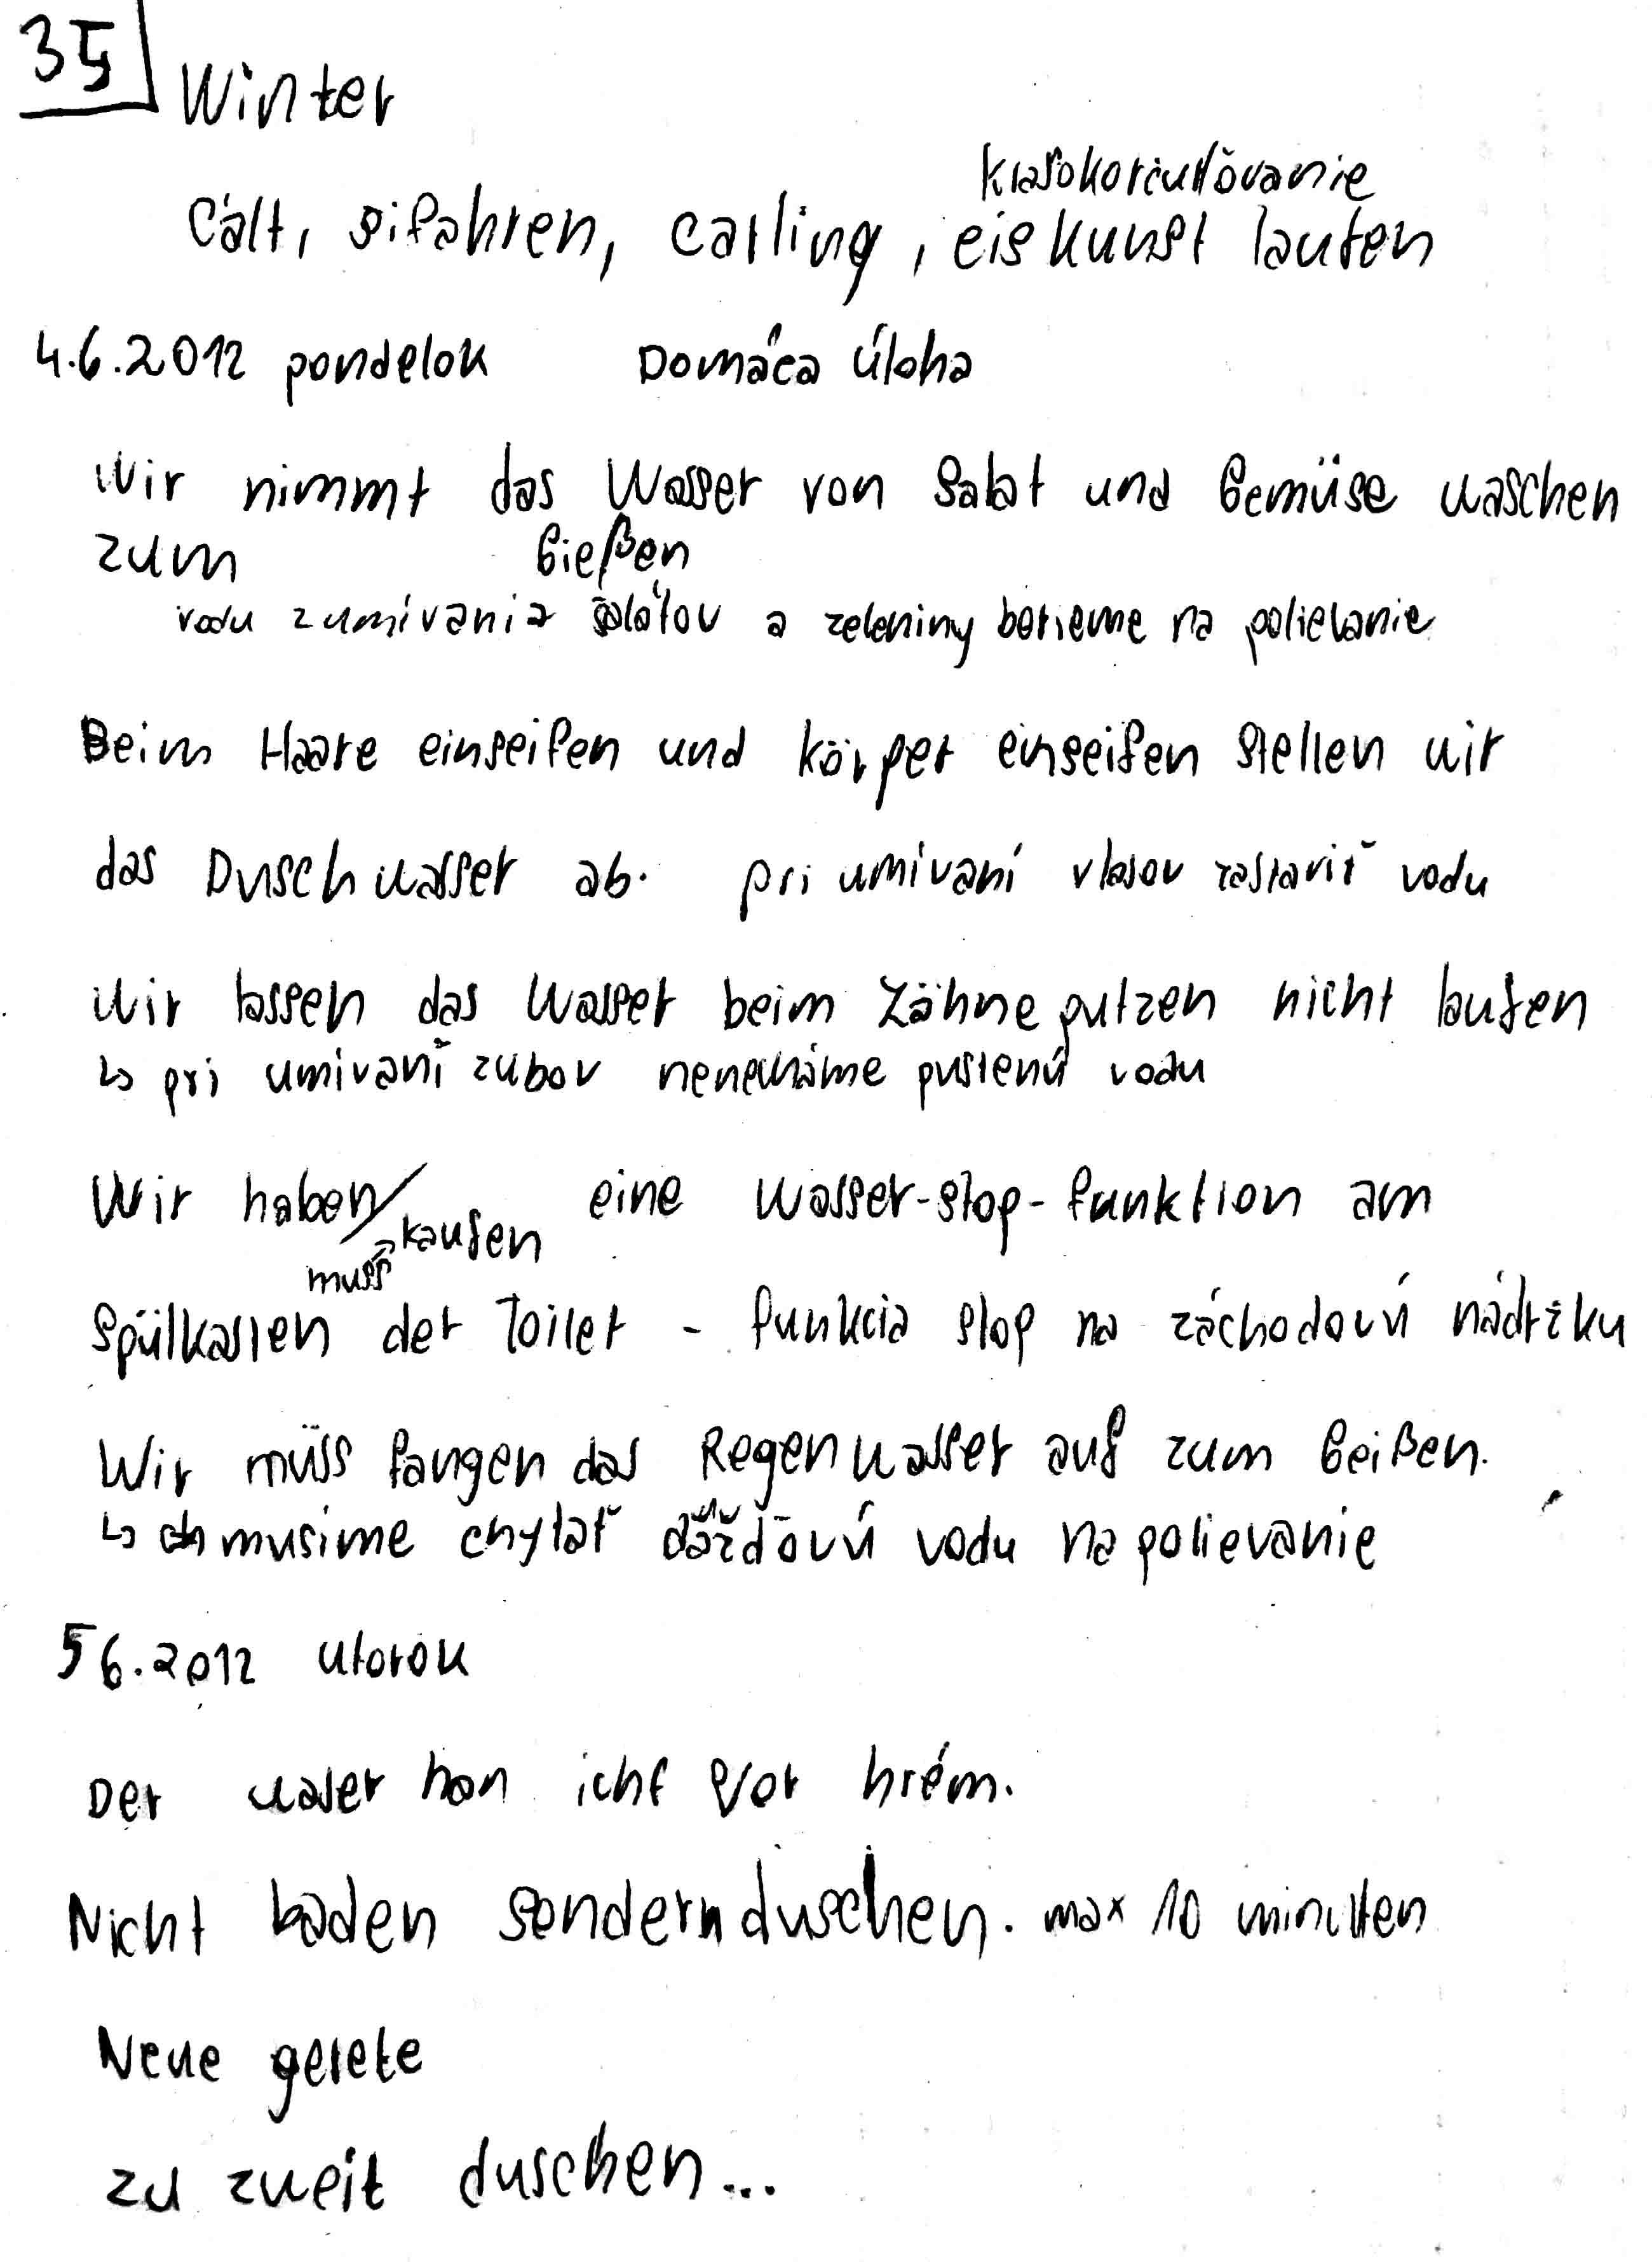 35
Winter
krasokorčuľovanie
Cált, sifahren, carling, eiskunst laufen
4.6.2012 pondelok Domáca úloha
Wir nimmt das Wasser von Salat und Gemüse waschen
zum Gießen
vodu z umívania šalátov a zeleniny berieme na polievanie
Beim Haare einseifen und körper einseifen stellen wir
das Duschwasser ab. pri umívaní vlasov zastaviť vodu
Wir lassen das Wasser beim Zähne putzen nicht laufen
↳ pri umívaní zubov nenecháme pustenú vodu
Wir haben/kaufen eine Wasser-stop-funktion am
muss
Spülkasten der Toilet - funkcia stop na záchodovú nádržku
Wir müss fangen das Regenwasser auf zum Geißen.
↳ musíme chytať dažďovú vodu na polievanie
5 6.2012 utorok
Der waser han ichf vor hrém.
Nicht baden sondern duschen. max 10 minuten
Neue gerete
zu zweit duschen...